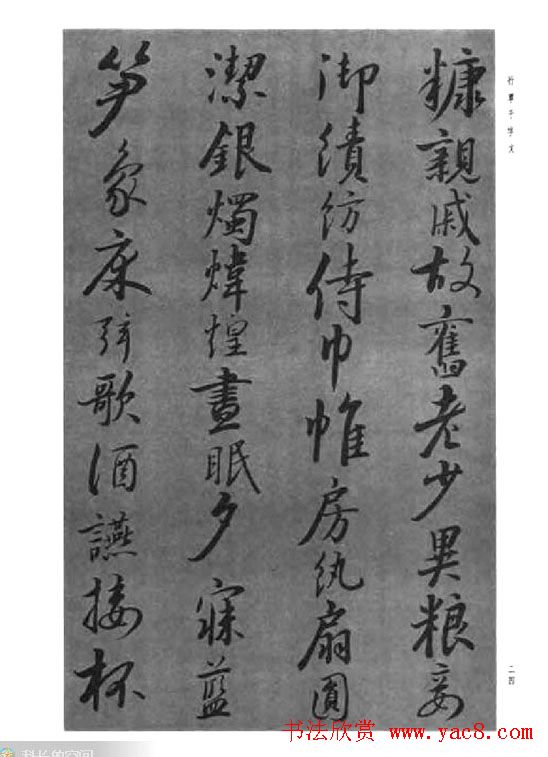 行草千字文
糠親戚故舊老少異粮妾
御績紡侍巾帷房紈扇圓
潔銀燭煒煌晝眠夕寐藍
笋象床弦歌酒讌接杯
二四
书法欣赏 www.yac8.com